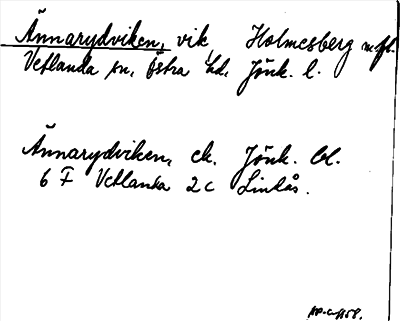 Ännarydviken, vik, Holmesberg m.fl.
Vetlanda sn, Östra hd, Jönk. l.
Ännarydviken, ek. Jönk. bl.
6 F Vetlanda 2 c Lindås.